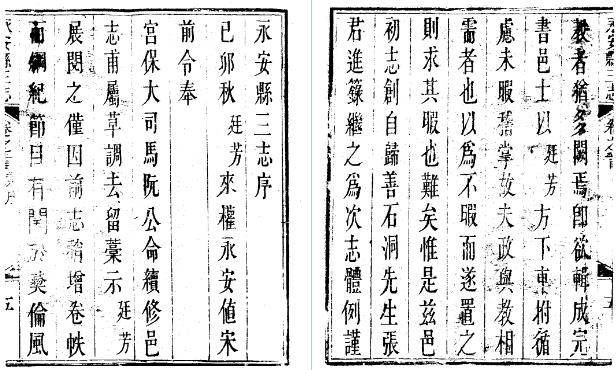 永安縣三志序
己卯秋廷芳來權永安值宋
前令奉
宮保大司馬阮公命續修邑
志甫屬草調去留藁示廷芳
展閱之僅因前志稍增卷帙
而綱紀節目有關於彞倫風
教者猶多闕焉即欲輯成完
書邑士以廷芳方下車拊循
慮未暇稽掌故夫政與教相
需者也以為不暇而遂置之
則求其暇也難矣惟是茲邑
初志創自歸善石洞先生張
君進籙繼之為次志體例謹